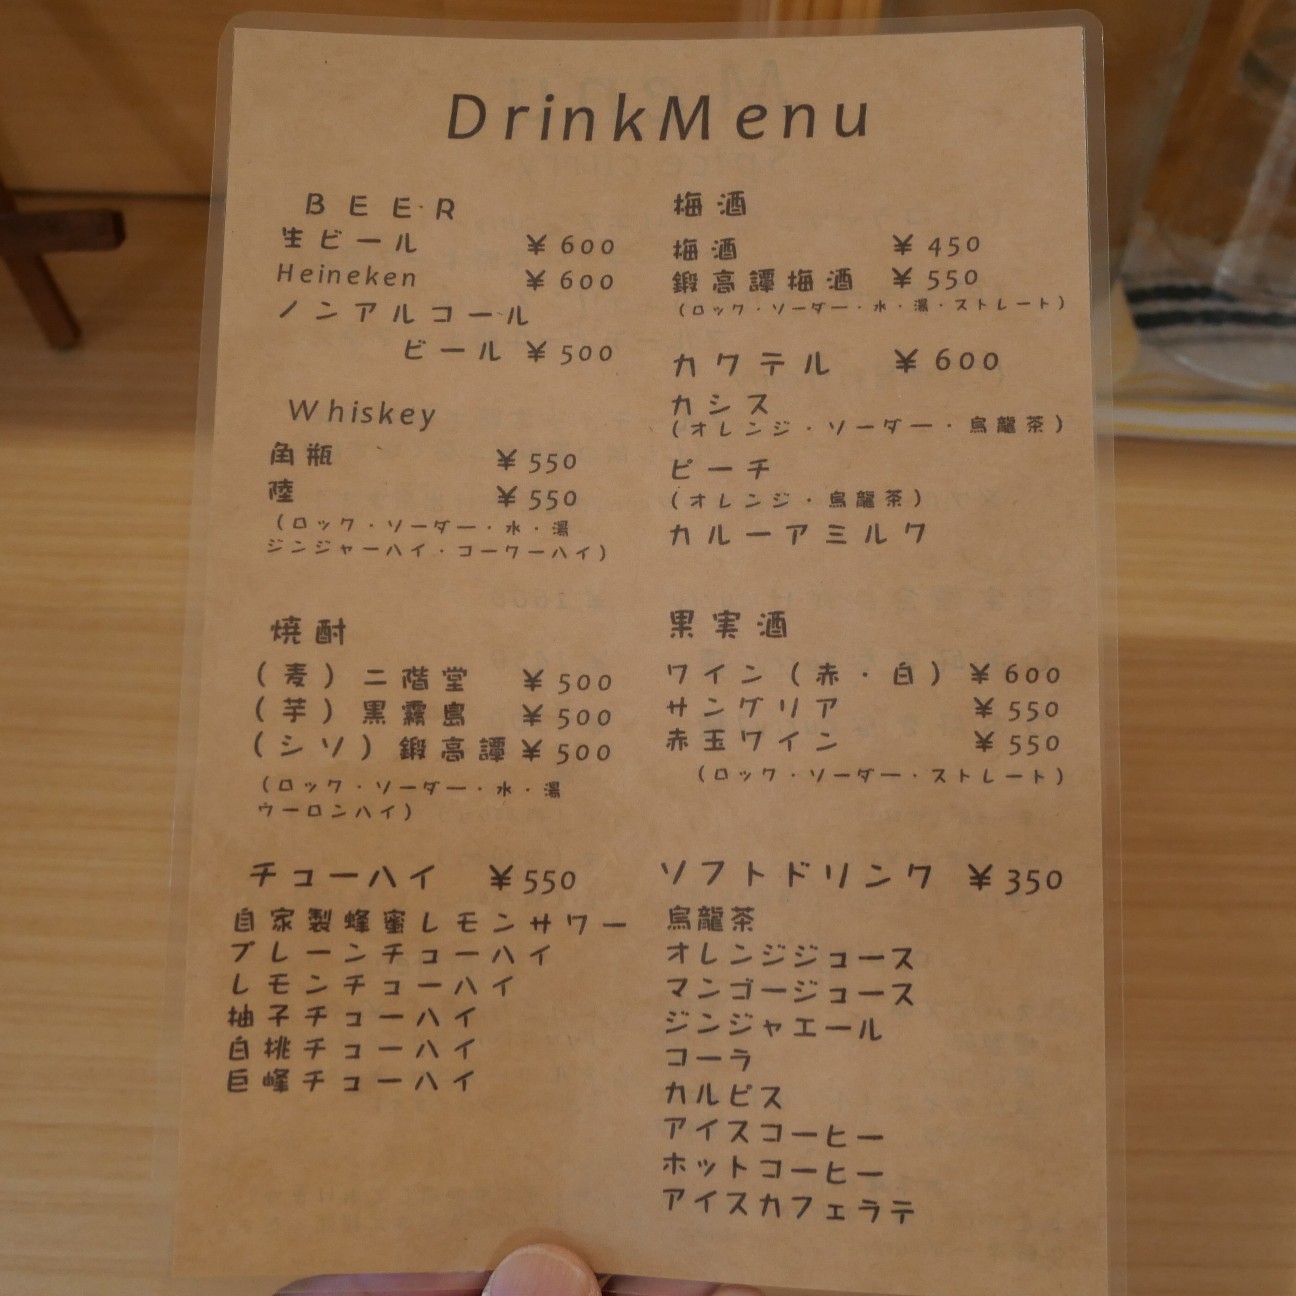 DrinkMenu
BEER
生ビール ￥600
Heineken ￥600
ノンアルコール
ビール ￥500
Whiskey
角瓶 ￥550
陸 ￥550
（ロック・ソーダー・水・湯
ジンジャーハイ・コークーハイ）
焼酎
（麦）二階堂 ￥500
（芋）黒霧島 ￥500
（シソ）鍛高譚 ￥500
（ロック・ソーダー・水・湯
ウーロンハイ）
チューハイ ￥550
自家製蜂蜜レモンサワー
プレーンチューハイ
レモンチューハイ
柚子チューハイ
白桃チューハイ
巨峰チューハイ
梅酒
梅酒 ￥450
鍛高譚梅酒 ￥550
（ロック・ソーダー・水・湯・ストレート）
カクテル ￥600
カシス
（オレンジ・ソーダー・烏龍茶）
ピーチ
（オレンジ・烏龍茶）
カルーアミルク
果実酒
ワイン（赤・白）￥600
サングリア ￥550
赤玉ワイン ￥550
（ロック・ソーダー・ストレート）
ソフトドリンク ￥350
烏龍茶
オレンジジュース
マンゴージュース
ジンジャエール
コーラ
カルピス
アイスコーヒー
ホットコーヒー
アイスカフェラテ